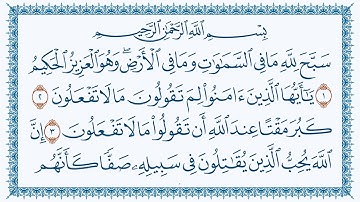 بِسْمِ اللَّهِ الرَّحْمَٰنِ الرَّحِيمِ
سَبَّحَ لِلَّهِ مَا فِي السَّمَٰوَٰتِ وَمَا فِي الْأَرْضِ ۖ وَهُوَ الْعَزِيزُ الْحَكِيمُ
١ يَٰٓأَيُّهَا الَّذِينَ ءَامَنُوا لِمَ تَقُولُونَ مَا لَا تَفْعَلُونَ ٢
كَبُرَ مَقْتًا عِندَ اللَّهِ أَن تَقُولُوا مَا لَا تَفْعَلُونَ ٣ إِنَّ
اللَّهَ يُحِبُّ الَّذِينَ يُقَٰتِلُونَ فِي سَبِيلِهِۦ صَفًّا كَأَنَّهُم